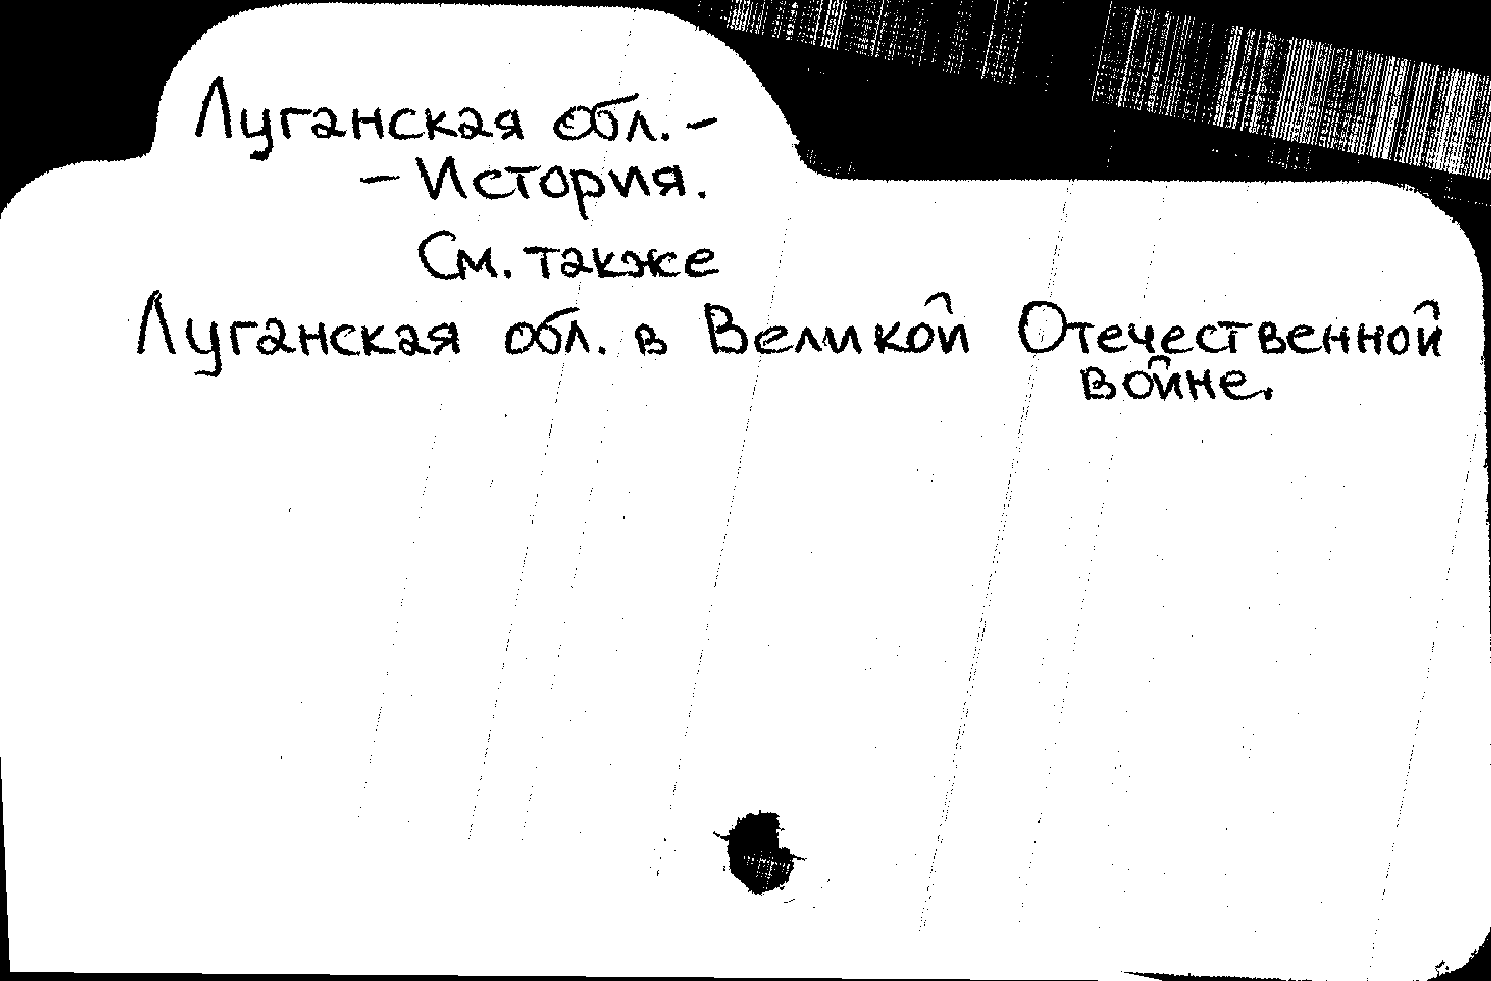 Луганская обл. -
- История.
См. также
Луганская обл. в Великой Отечественной
войне.